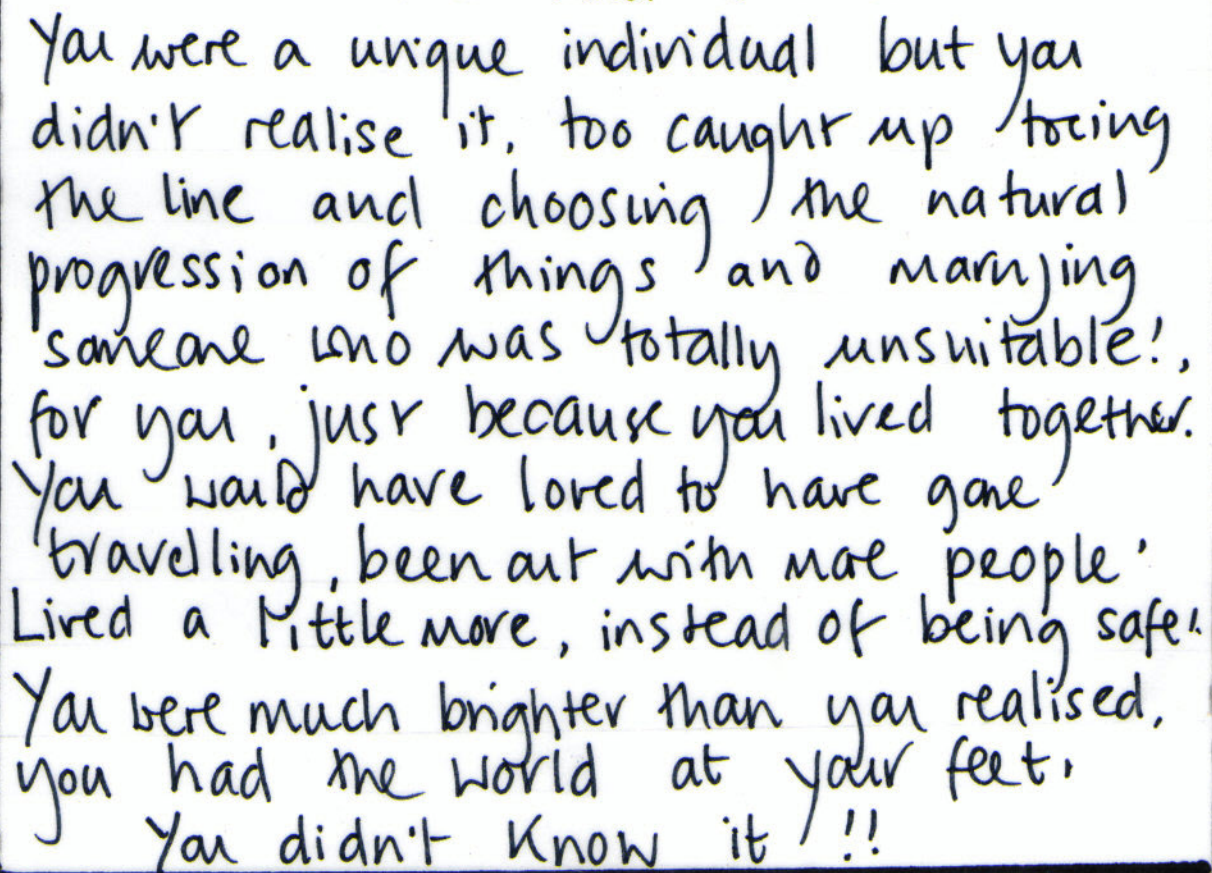 You were a unique individual but you
didn't realise it, too caught up toeing
the line and choosing the natural
progression of things and marrying
someone who was totally unsuitable!,
for you, just because you lived together.
You would have loved to have gone
travelling, been out with more people'
Lived a little more, instead of being safe!.
You were much brighter than you realised,
you had the world at your feet,
You didn't know it !!